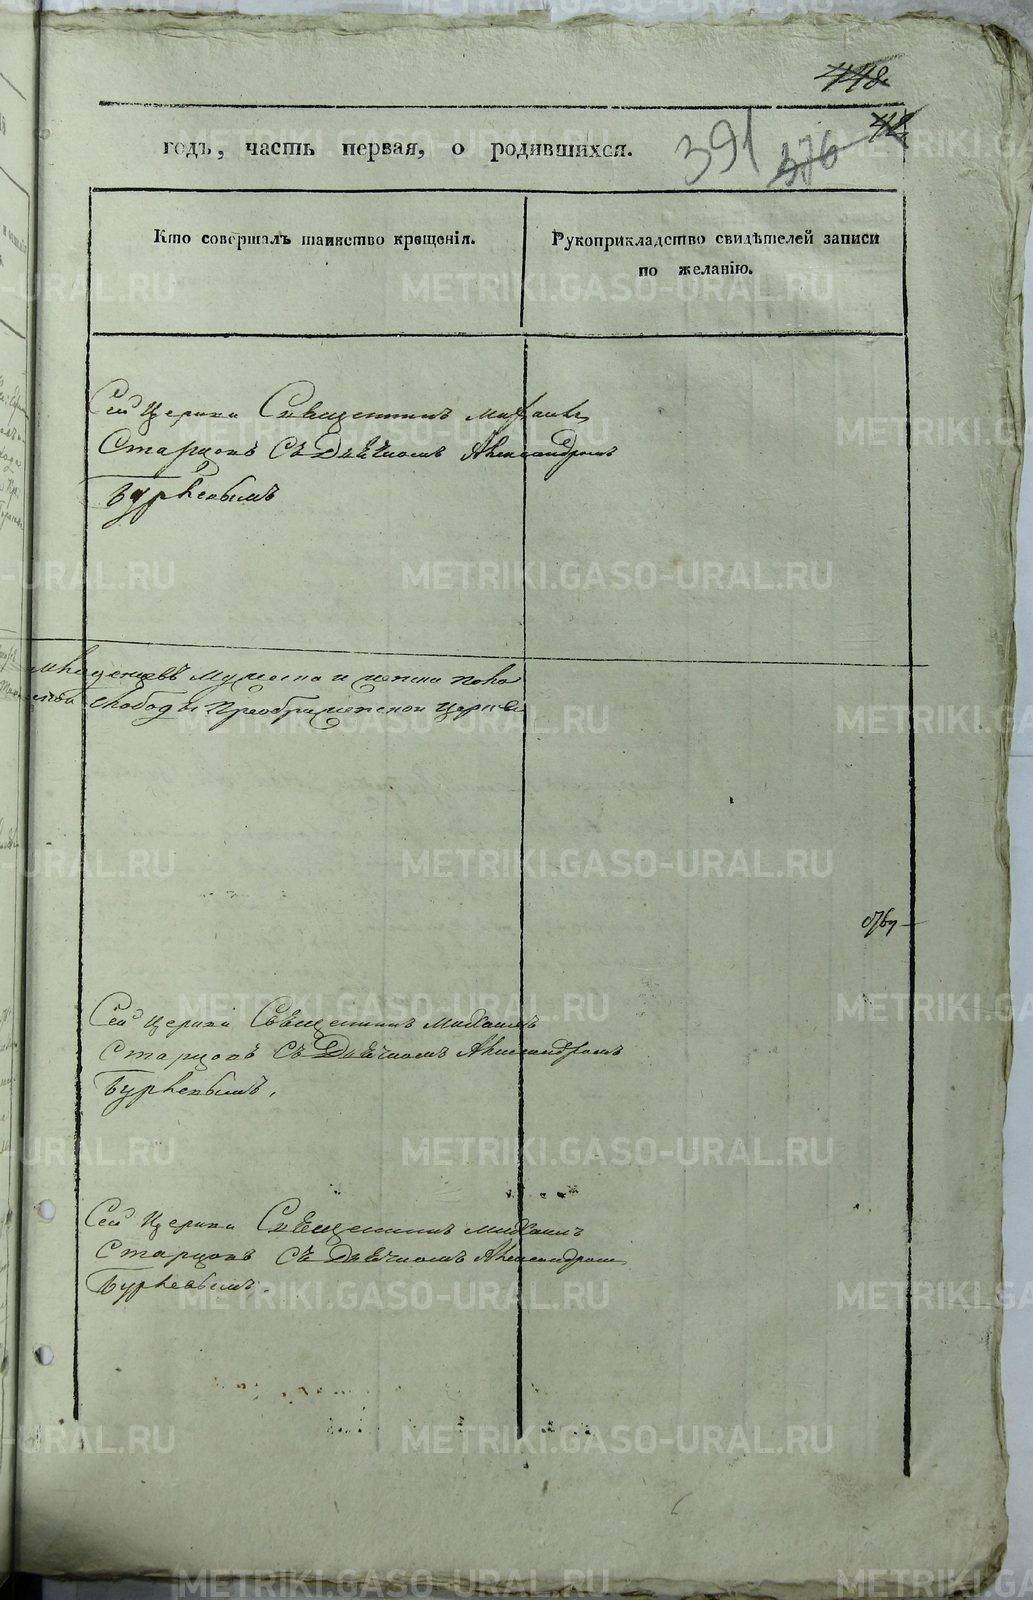 448
42
годъ, часть первая, о родившихся.
391 376
Кто совершалъ таинство крещенія.
Рукоприкладство свидѣтелей записи
по желанію.
Сей Церкви Священникъ Михаилъ
Старцовъ Съ Дьячкомъ Александромъ
Бурлевымъ
младенцевъ мужеска и женска пола
слободы Преображенской церкви
Сей Церкви Священникъ Михаилъ
Старцовъ Съ Дьячкомъ Александромъ
Бурлевымъ.
Сей Церкви Священникъ Михаилъ
Старцовъ Съ Дьячкомъ Александромъ
Бурлевымъ.
METRIKI.GASO-URAL.RU